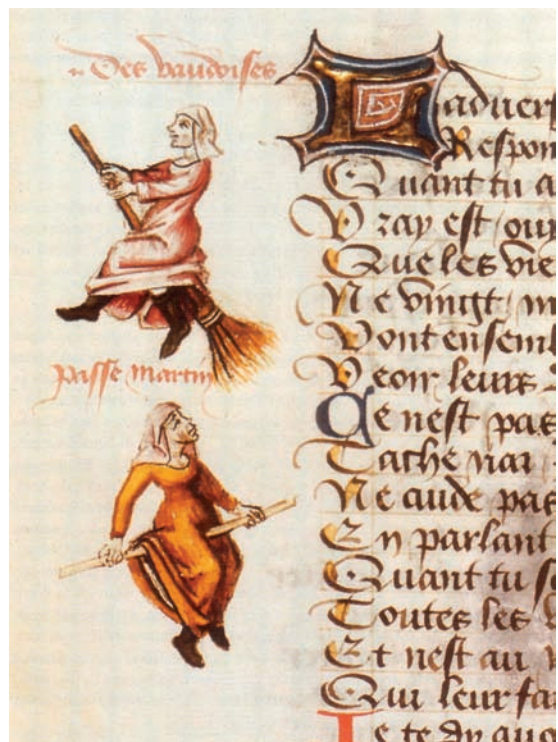 Des vaudoises
passe martin
Laduers
Respon
Quant tu a
Vray est ouy
Que les vie
Ne vingt m
Vont ensembl
Veoir leurs
Ce nest pas
Ne cuide pas
En parlant
Quant tu s
Toutes les
Et nest au
Qui leur fa
Je te dy